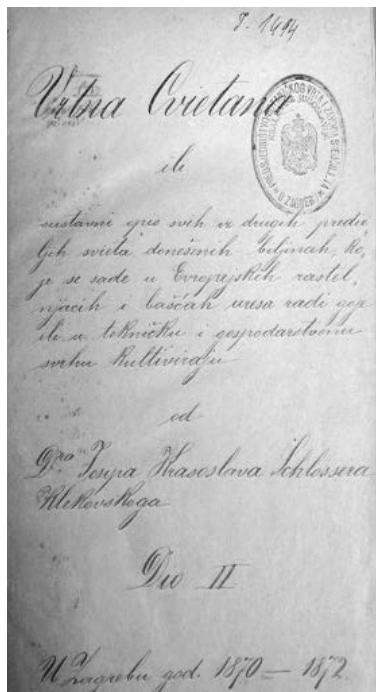 Vrtna Cvietana
ili
sustavni opis svih iz drugih predie,
ljih svieta donešenih biljinah, ko,
je se sade u Evropejskih rastel,
njacih i bašćah uresa radi goje
ili u tekničku i gospodarstvenu
svrhu kultiviraju
od
Dra Josipa Krasoslava Schlossera
Klekovskoga
Dio II
U Zagrebu god. 1870 — 1872.